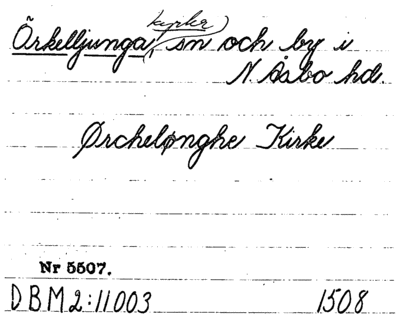 Örkelljunga, sn och by i
N Åsbo hd.
Ørchelønghe Kirke
Nr 5507.
DBM2:11003 1508